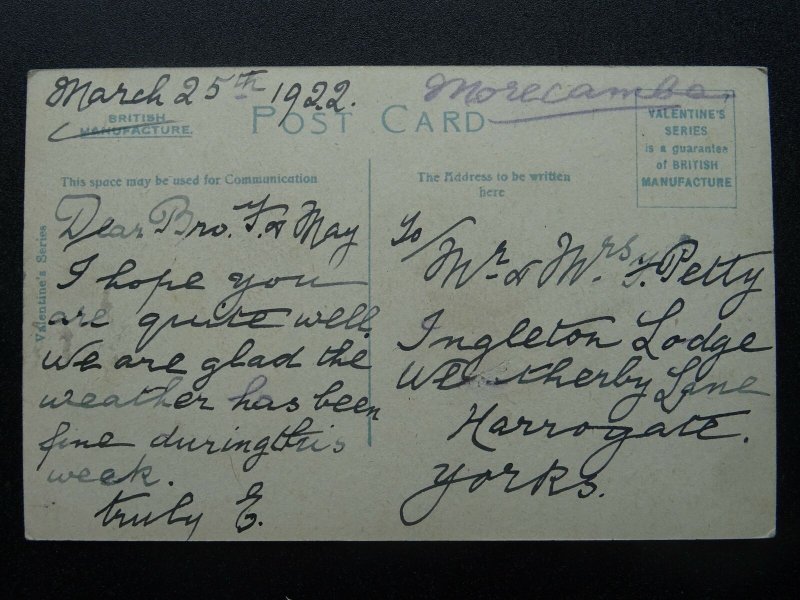 March 25th 1922.
Morecambe
BRITISH
MANUFACTURE.
POST CARD
VALENTINE'S
SERIES
is a guarantee
of BRITISH
MANUFACTURE
This space may be used for Communication
The Address to be written
here
Valentine's Series
Dear Bro. F. & May
I hope you
are quite well.
We are glad the
weather has been
fine during this
week.
truly E.
To/
Mr. & Mrs. F. Petty
Ingleton Lodge
Weatherby Lane
Harrogate.
Yorks.